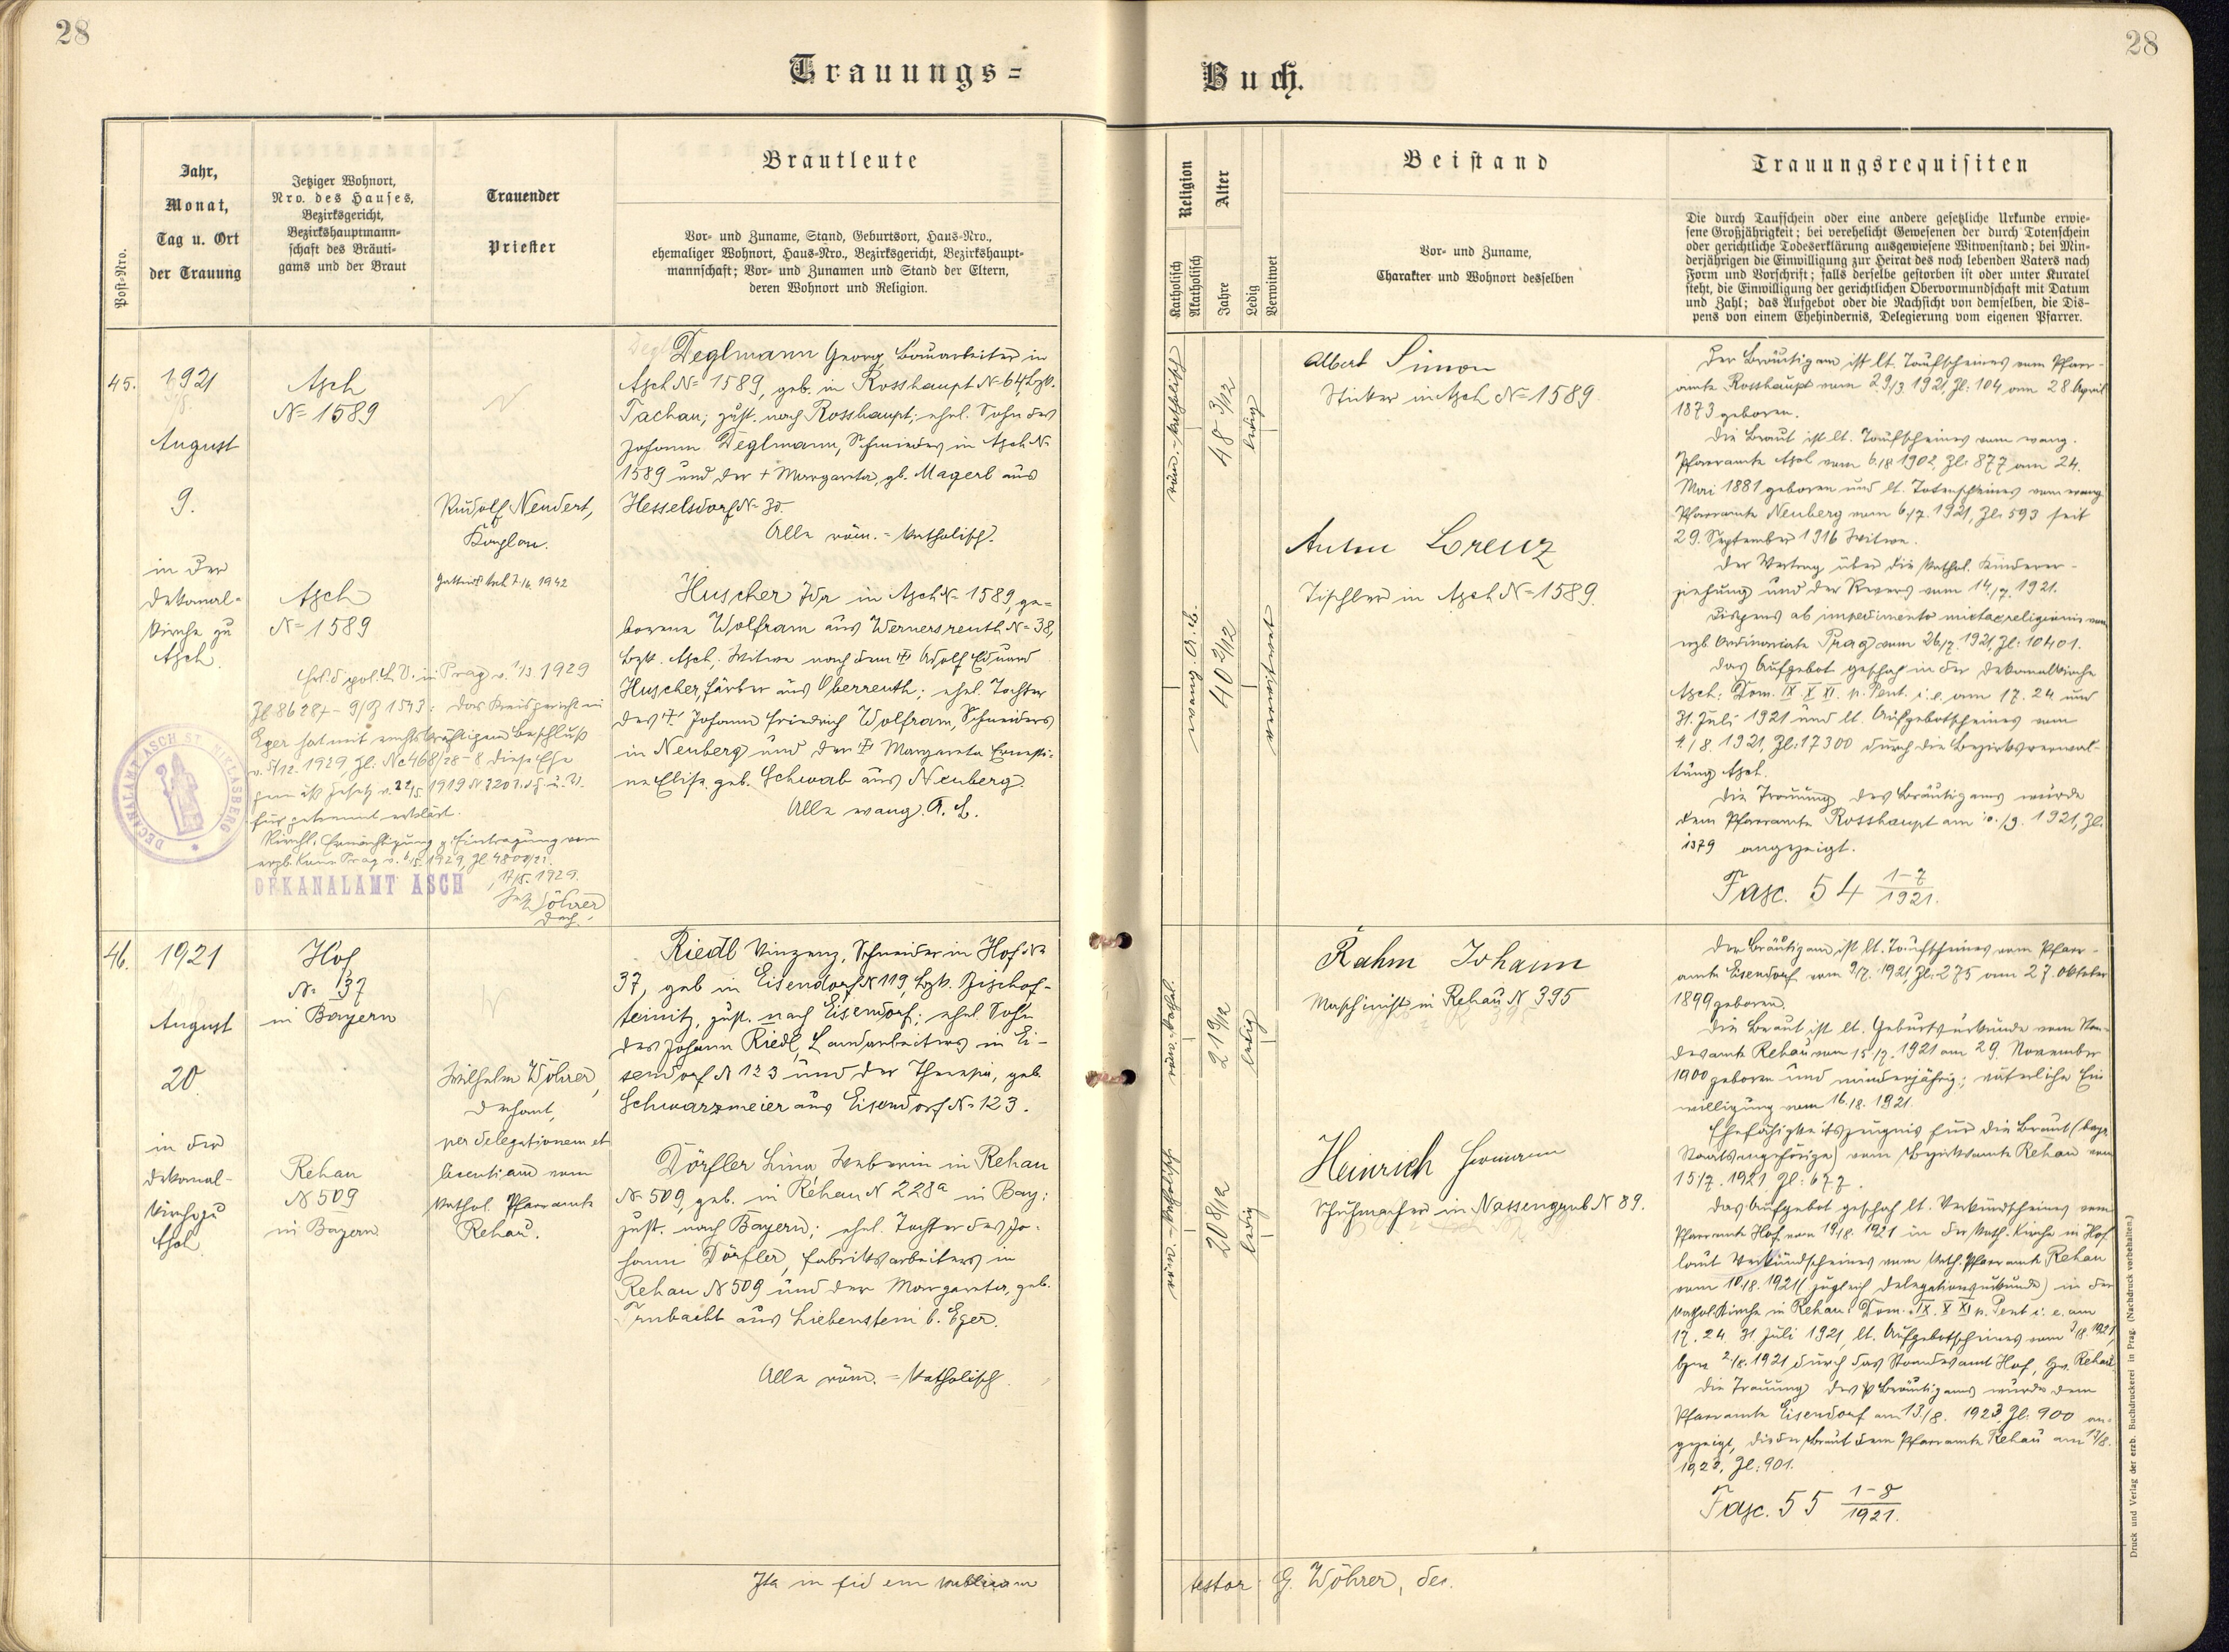 28
28
Trauungs=
Buch.
Post-Nro.
Jahr,
Monat,
Tag u. Ort
der Trauung
Jetziger Wohnort,
Nro. des Hauses,
Bezirksgericht,
Bezirkshauptmann-
schaft des Bräuti-
gams und der Braut
Trauender
Priester
Brautleute
Vor- und Zuname, Stand, Geburtsort, Haus-Nro.,
ehemaliger Wohnort, Haus-Nro., Bezirksgericht, Bezirkshaupt-
mannschaft; Vor- und Zunamen und Stand der Eltern,
deren Wohnort und Religion.
Religion
Katholisch
Akatholisch
Alter
Jahre
Ledig
Verwitwet
Beistand
Vor- und Zuname,
Charakter und Wohnort desselben
Trauungsrequisiten
Die durch Taufschein oder eine andere gesetzliche Urkunde erwie-
sene Großjährigkeit; bei verehelicht Gewesenen der durch Totenschein
oder gerichtliche Todeserklärung ausgewiesene Witwenstand; bei Min-
derjährigen die Einwilligung zur Heirat des noch lebenden Vaters nach
Form und Vorschrift; falls derselbe gestorben ist oder unter Kuratel
steht, die Einwilligung der gerichtlichen Obervormundschaft mit Datum
und Zahl; das Aufgebot oder die Nachsicht von demselben, die Dis-
pens von einem Ehehindernis, Delegierung vom eigenen Pfarrer.
45.
1921
August
9.
in der
Dekanal-
kirche zu
Asch.
Asch
N= 1589
Asch
N= 1589
Rudolf Neudert,
Kaplan.
Erl. d. pol. L. V. in Prag v. 1/3 1929
Das Kreisgericht in
Eger hat mit rechtskräftigem Beschluß
v. 5/12. 1929, Zl: Nc 468/28-8 diese Ehe
für getrennt erklärt.
Kirchl. Ermächtigung z. Eintragung vom
DECANALAMT ASCH ST. NIKLASBERG
DEKANALAMT ASCH
17/5. 1929.
Wöhrer
Dech.
Deglmann Georg, Bauarbeiter in
Asch N= 1589, geb. in Rosshaupt N= 64, Bzk.
Tachau; zust. nach Rosshaupt; ehel. Sohn des
Johann Deglmann, Schmiedes in Asch N=
1589 und der + Margareta, gb. Magerl aus
Hesselsdorf N= 30.
Alle röm.=katholisch.
Huscher Ida in Asch N= 1589, ge=
borene Wolfram aus Wernersreuth N= 38,
Bzk. Asch; Witwe nach dem + Adolf Eduard
Huscher, Färber aus Oberreuth; ehel. Tochter
des + Johann Friedrich Wolfram, Schneiders
in Neuberg und der + Margareta Ernesti=
ne Elise geb. Schwab aus Neuberg.
Alle evang. A. B.
röm.-katholisch
48 3/12
ledig
evang. A. B.
40 2/12
verwitwet
Albert Simon
Sticker in Asch N= 1589
Anton Lorenz
Tischler in Asch N= 1589.
Der Bräutigam ist lt. Taufscheines vom Pfarr-
amte Rosshaupt vom 29/3 1921, Zl. 104 am 28. April
1873 geboren.
Die Braut ist lt. Taufscheines vom evang.
Pfarramte Asch vom 6./8 1902, Zl: 877 am 24.
Mai 1881 geboren und lt. Totenscheines vom evang.
Pfarramte Neuberg vom 6./7. 1921, Zl: 593 seit
29. September 1916 Witwe.
Der Vertrag über die kathol. Kinderer-
ziehung und der Revers vom 14./7. 1921.
Dispens ab impedimento mixtae religionis vom
erzb. Ordinariate Prag vom 26./7. 1921, Zl: 10401.
Das Aufgebot geschah in der Dekanalkirche
Asch: Dom. IX. X. XI. p. Pent. i. e. am 17. 24 und
31. Juli 1921 und lt. Aufgebotscheines vom
1./8. 1921, Zl: 17300 durch die Bezirksverwal-
tung Asch.
Die Trauung des Bräutigams wurde
dem Pfarramte Rosshaupt am 10./9. 1921, Zl.
1379 angezeigt.
Fasc. 54 1-7/1921.
46.
1921
August
20
in der
Dekanal-
kirche zu
Asch.
Hof
N= 137
in Bayern
Rehau
N 509
in Bayern
Wilhelm Wöhrer,
Dechant,
per delegationem et
licentiam vom
kathol. Pfarramte
Rehau.
Riedl Vinzenz, Schneider in Hof N=
37, geb in Eisendorf N 119, Bzk. Bischof-
teinitz, zust. nach Eisendorf; ehel. Sohn
des Johann Riedl, Landarbeiters in Ei-
sendorf N 123 und der Theresia, geb.
Schwarzmeier aus Eisendorf N= 123.
Dörfler Lina Weberin in Rehau
N= 509, geb. in Rehau N 228a in Bay:
zust. nach Bayern; ehel. Tochter des Jo-
hann Dörfler, Fabriksarbeiters in
Rehau N 509 und der Margareta, geb.
aus Liebenstein b. Eger.
Alle röm.=katholisch.
röm.-kathol.
21 9/12
ledig
röm.-katholisch
20 8/12
ledig
Rahm Johann
Maschinist in Rehau N 395
Heinrich Hermann
Schuhmacher in Nassengrub N 89.
Der Bräutigam ist lt. Taufscheines vom Pfarr-
amte Eisendorf vom 9/7. 1921, Zl: 275 am 27. Oktober
1899 geboren.
Die Braut ist lt. Geburtsurkunde vom Stan-
desamte Rehau vom 15/7. 1921 am 29. November
1900 geboren und minderjährig; väterliche Ein
willigung vom 16./8. 1921.
Ehefähigkeitszeugnis für die Braut (bayr.
Staatsangehörige) vom Bezirksamte Rehau vom
15/7. 1921 Zl: 677.
Das Aufgebot geschah lt. Verkündscheines vom
Pfarramte Hof vom 19/8. 1921 in der kath. Kirche in Hof
laut Verkündscheines vom kath. Pfarramte Rehau
vom 10/8. 1921 (zugleich Delegationsurkunde) in der
kathol. Kirche in Rehau: Dom. IX. X XI p. Pent i. e. am
17. 24. 31. Juli 1921, lt. Aufgebotscheines vom 3/8. 1921,
bzw. 2/8. 1921 durch das Standesamt Hof, bzw. Rehau.
Die Trauung des Bräutigams wurde dem
Pfarramte Eisendorf am 13./8. 1923 Zl: 900 an-
gezeigt, die der Braut dem Pfarramte Rehau am 13/8.
1923, Zl: 901.
Fasc. 55 1-8/1921.
Ita in fidem publicam
testor G. Wöhrer, dec.
Druck und Verlag der erzb. Buchdruckerei in Prag. (Nachdruck vorbehalten.)